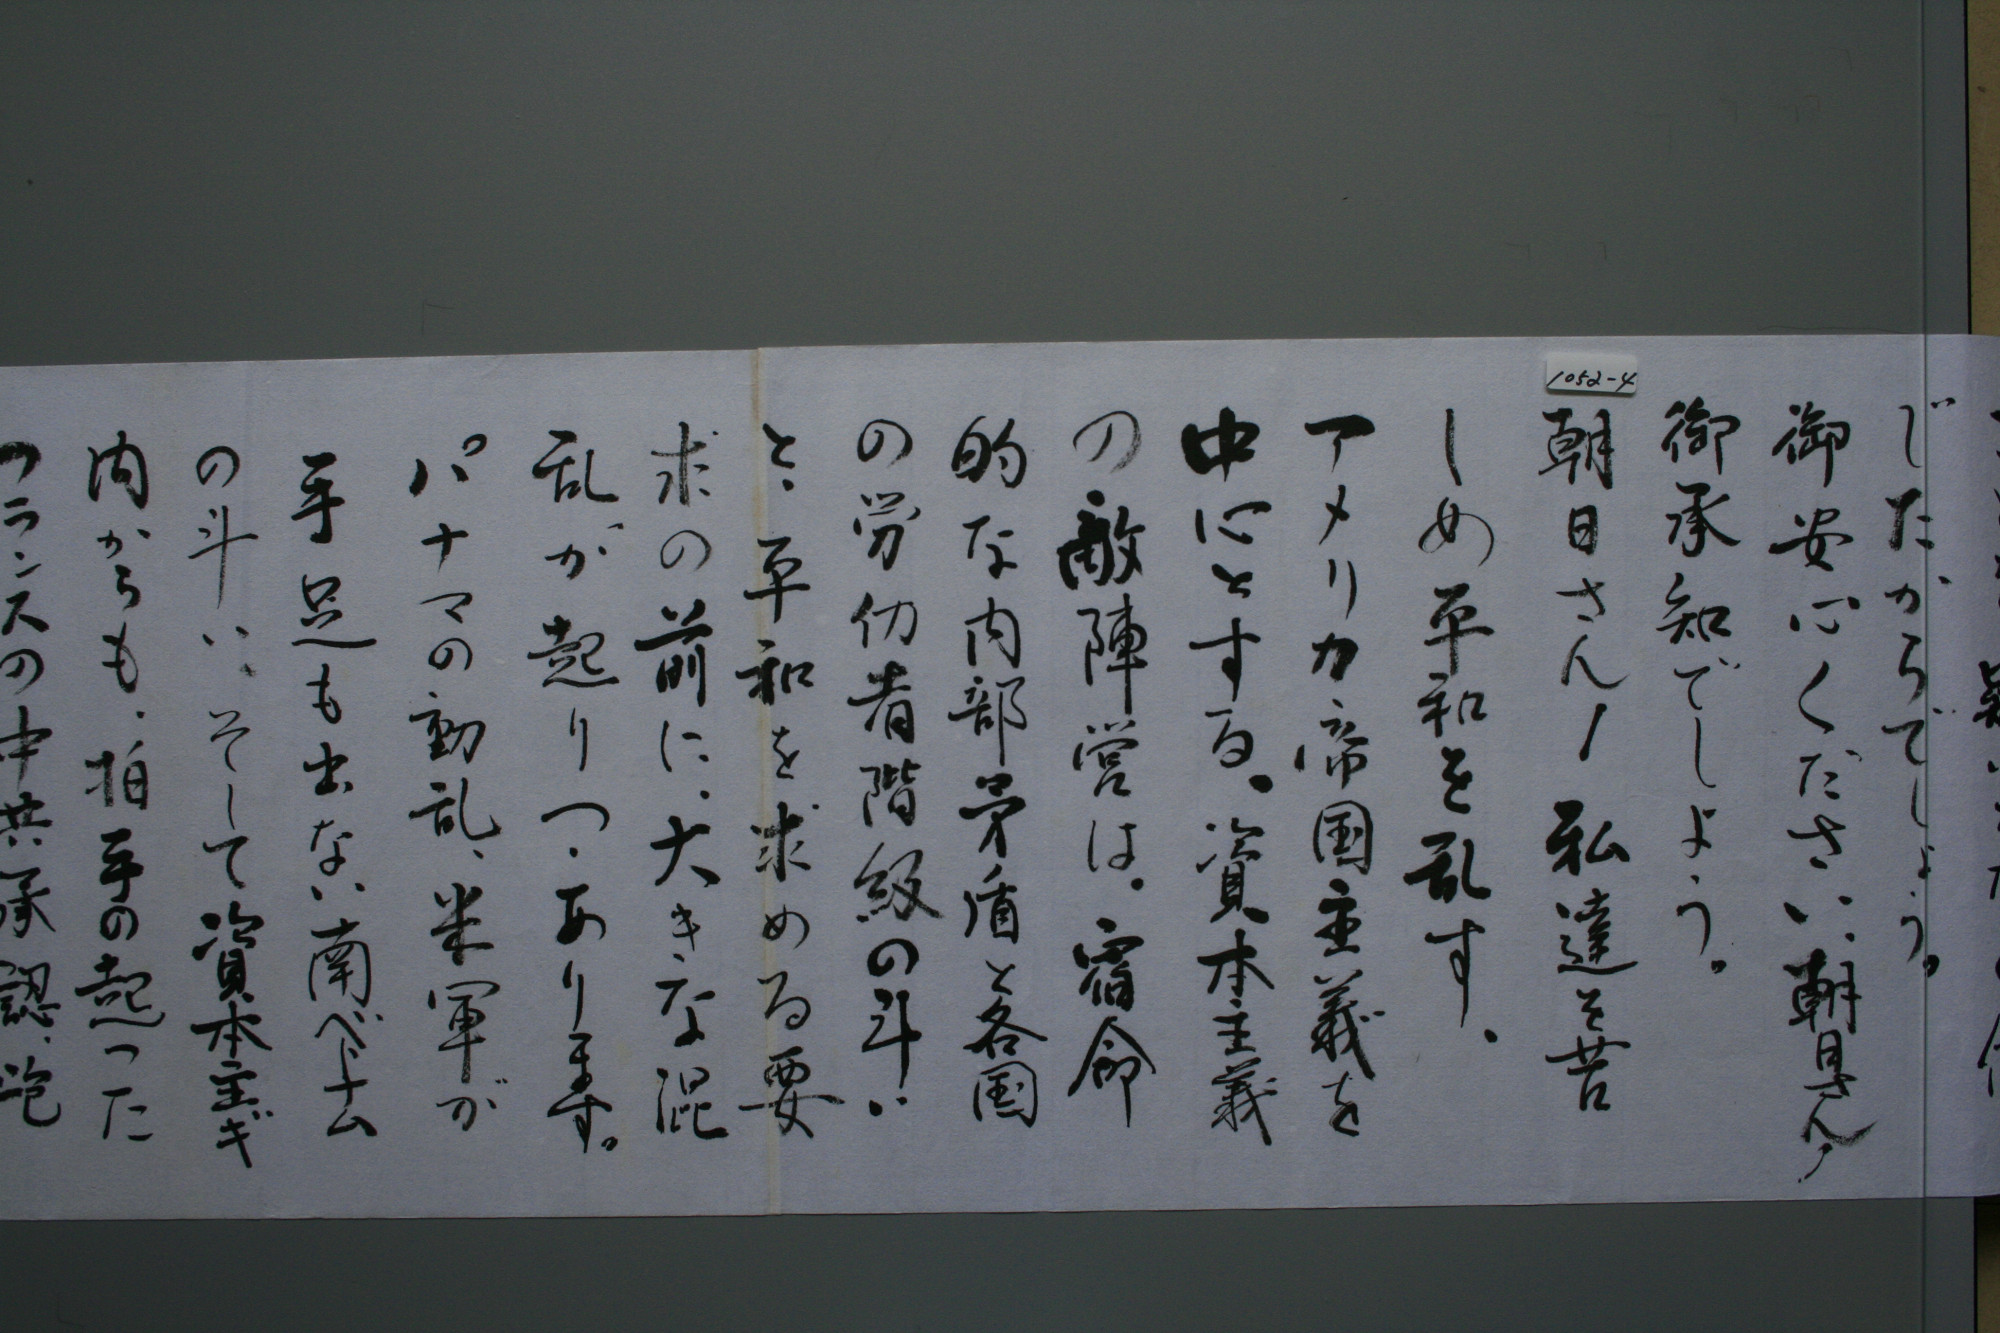 じたからでしょう。
御安心ください、朝日さん!
御承知でしょう。
1052-4
朝日さん! 私達を苦
しめ平和を乱す、
アメリカ帝国主義を
中心とする、資本主義
の敵陣営は、宿命
的な内部矛盾と各国
の労仂者階級の斗い
と、平和を求める要
求の前に、大きな混
乱が起りつゝあります。
パナマの動乱、米軍が
手足も出ない南ベトナム
の斗い、そして資本主ギ
内からも、拍手の起った
フランスの中共承認、